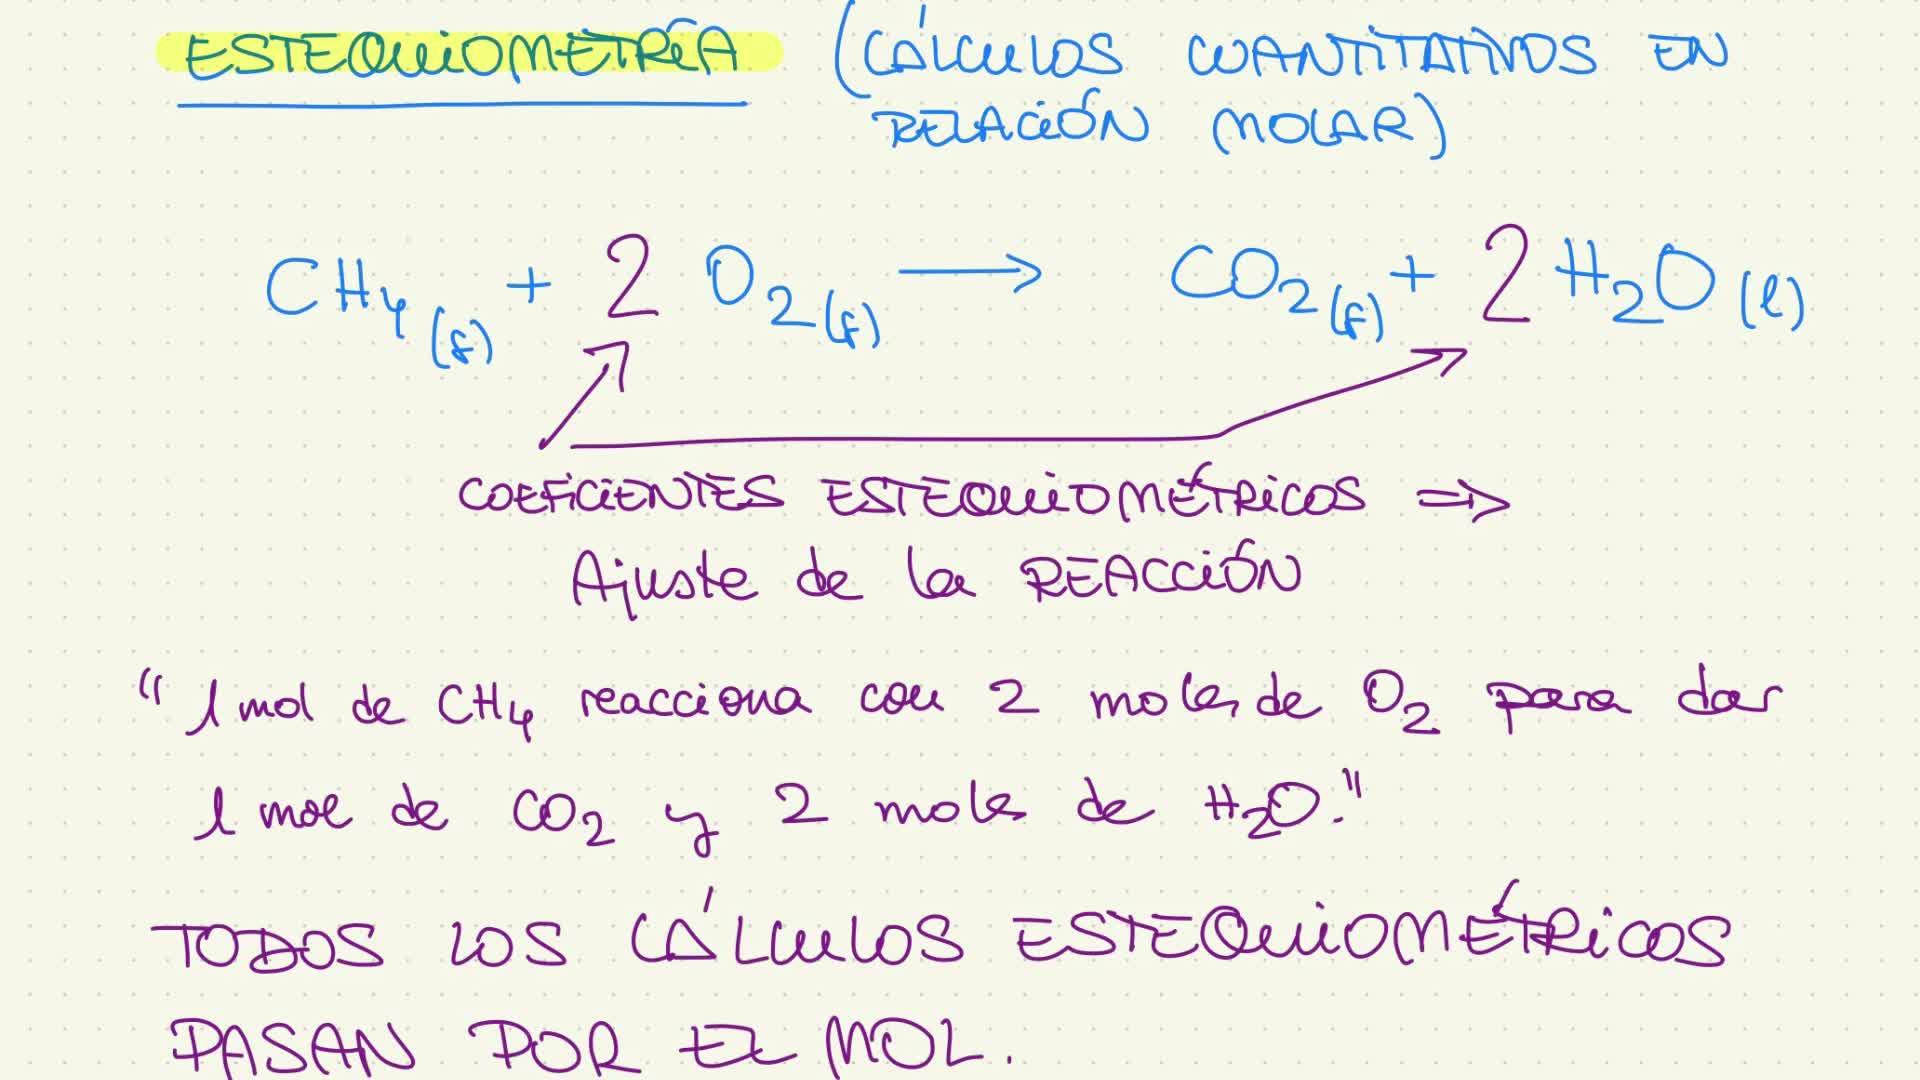 ESTEQUIOMETRÍA (CÁLCULOS CUANTITATIVOS EN
RELACIÓN MOLAR)
CH₄(g) + 2 O₂(g) → CO₂(g) + 2 H₂O(l)
COEFICIENTES ESTEQUIOMÉTRICOS ⇒
Ajuste de la REACCIÓN
"1 mol de CH₄ reacciona con 2 moles de O₂ para dar
1 mol de CO₂ y 2 moles de H₂O."
TODOS LOS CÁLCULOS ESTEQUIOMÉTRICOS
PASAN POR EL MOL.